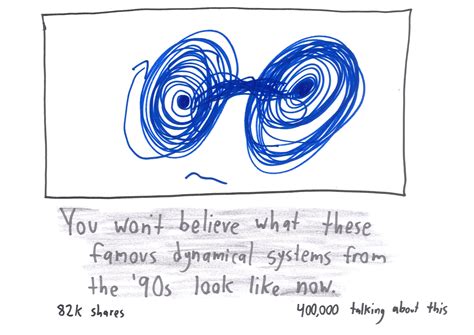 You won't believe what these
famous dynamical systems from
the '90s look like now.
82k shares 400,000 talking about this